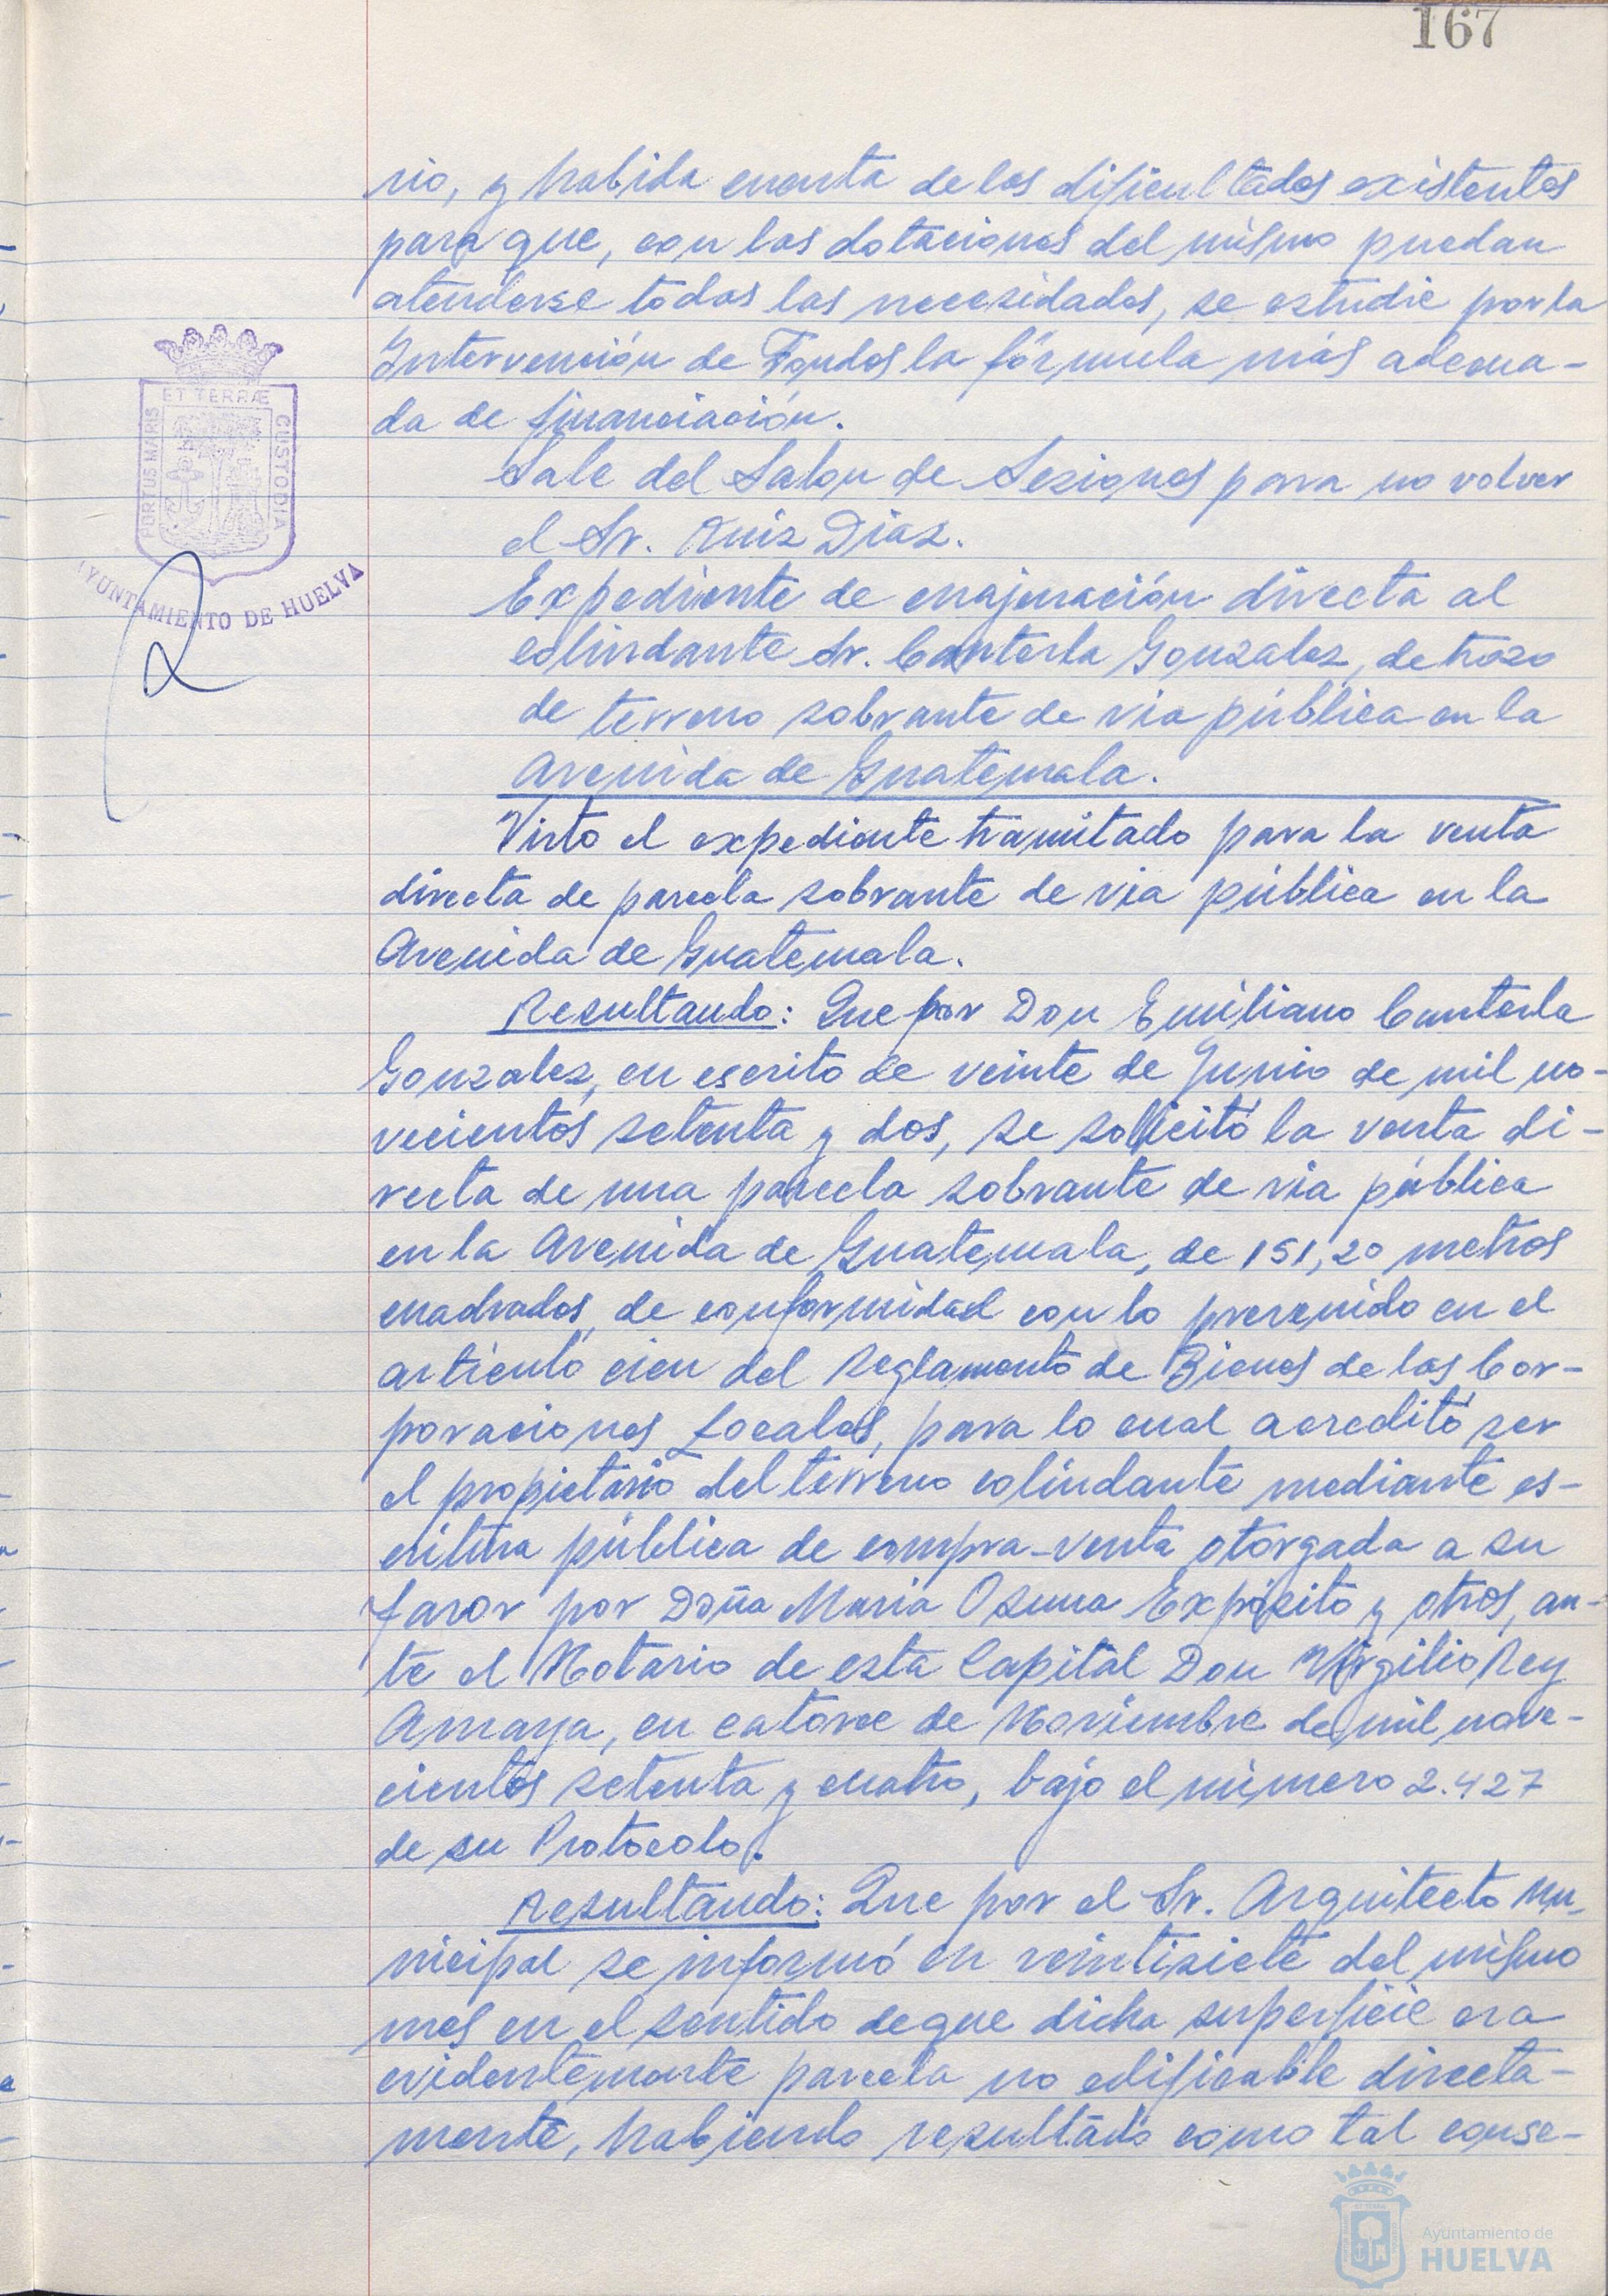 167
rio, y habida cuenta de las dificultades existentes
para que, con las dotaciones del mismo puedan
atenderse todas las necesidades, se estudie por la
Intervención de Fondos la fórmula más adecua-
da de financiación.
Sale del Salon de Sesiones para no volver
el Sr. Ruiz Diaz.
Expediente de enajenación directa al
colindante Sr. Canterla Gonzalez, de trozo
de terreno sobrante de via pública en la
Avenida de Guatemala.
Visto el expediente tramitado para la venta
directa de parcela sobrante de via pública en la
Avenida de Guatemala.
Resultando: Que por Don Emiliano Canterla
Gonzalez, en escrito de veinte de Junio de mil no-
vecientos setenta y dos, se solicitó la venta di-
recta de una parcela sobrante de via pública
en la Avenida de Guatemala, de 151,20 metros
cuadrados, de conformidad con lo prevenido en el
articulo cien del Reglamento de Bienes de las Cor-
poraciones Locales, para lo cual acreditó ser
el propietario del terreno colindante mediante es-
critura pública de compra-venta otorgada a su
favor por Doña Maria Osuna Expósito y otros, an-
te el Notario de esta Capital Don Virgilio Rey
Amaya, en catorce de Noviembre de mil nove-
cientos setenta y cuatro, bajo el número 2.427
de su Protocolo.
Resultando: Que por el Sr. Arquitecto Mu-
nicipal se informó en veintisiete del mismo
mes en el sentido de que dicha superficie era
evidentemente parcela no edificable directa-
mente, habiendo resultado como tal conse-
PORTUS MARIS
ET TERRÆ
CUSTODIA
AYUNTAMIENTO DE HUELVA
Ayuntamiento de
HUELVA